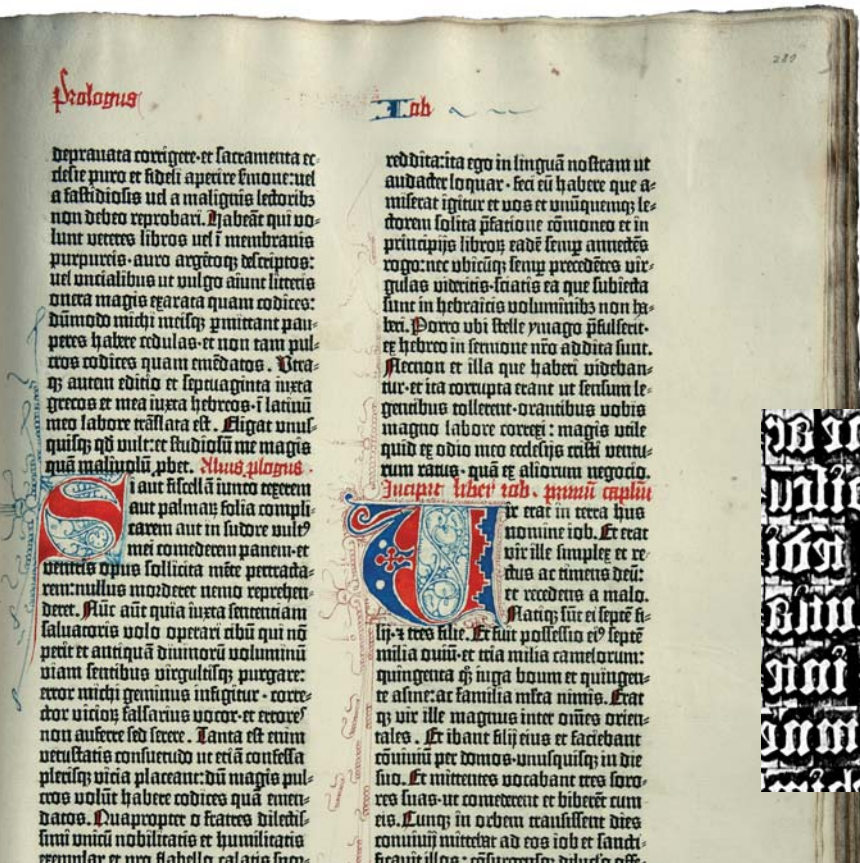 Prologus
Iob
289
deprauata corrigere·et sacramenta ec-
clesie puro et fideli aperire sermone:uel
a fastidiosis uel a malignis lectoribꝫ
non debeo reprobari. Habeāt qui vo-
lunt veteres libros uel ī membranis
purpureis·auro argētoqꝫ descriptos:
uel vncialibus ut vulgo aiunt litteris
onera magis exarata quam codices:
dūmodo michi meisqꝫ ꝑmittant pau-
peres habere cedulas·et non tam pul-
cros codices quam emēdatos. Vtra-
qꝫ autem editio et septuaginta iuxta
grecos et mea iuxta hebreos·ī latinū
meo labore trāslata est. Eligat vnus-
quisqꝫ qd vult:et studiosū me magis
quā maliuolū ꝓbet. Alius ꝓlogus·
Si aut fiscellā iunco texerem
aut palmaꝝ folia compli-
carem aut in sudore vultꝰ
mei comederem panem·et
ventris opus sollicita mēte pertracta-
rem:nullus morderet nemo reprehen-
deret. Nūc aūt quia iuxta sententiam
saluatoris volo operari cibū qui nō
perit et antiquā diuinorū voluminū
viam sentibus virgultisqꝫ purgare:
error michi geminus infigitur·corre-
ctor vicioꝝ falsarius vocor·et errores
non auferre sed serere. Tanta est enim
vetustatis consuetudo ut etiā confessa
plerisqꝫ vicia placeant:dū magis pul-
cros volūt habere codices quā emen-
datos. Quapropter o fratres dilectis-
simi vnicū nobilitatis et humilitatis
exemplar et pro flabello calatis spor-
reddita:ita ego in linguā nostram ut
audacter loquar·feci eū habere que a-
miserat igitur et vos et vnūquemqꝫ le-
ctorem solita p̄fatione cōmoneo et in
principijs libroꝝ eadē semꝑ annectēs
rogo:nec vbicūqꝫ semꝑ precedētes vir-
gulas videritis·sciatis ea que subiecta
sunt in hebraicis voluminibꝫ non ha-
beri. Porro vbi stelle ymago p̄fulserit·
ex hebreo in sermone nr̄o addita sunt.
Necnon et illa que haberi videban-
tur·et ita corrupta erant ut sensum le-
gentibus tollerent·orantibus vobis
magno labore correxi: magis vtile
quid ex odio meo ecclesijs cristi ventu-
rum ratus·quā ex aliorum negocio.
Incipit liber iob. primū capl'm
Uir erat in terra hus
nomine iob. Et erat
vir ille simplex et re-
ctus ac timens deū:
et recedens a malo.
Natiqꝫ sūt ei septē fi-
lij·⁊ tres filie. Et fuit possessio eiꝰ septē
milia ouiū·et tria milia camelorum:
quingenta qꝫ iuga boum et quingen-
te asine:ac familia m̄lta nimis. Erat
qꝫ vir ille magnus inter om̄es orien-
tales. Et ibant filij eius et faciebant
cōuiuiū per domos·vnusquisqꝫ in die
suo. Et mittentes vocabant tres soro-
res suas·ut comederent et biberēt cum
eis. Cunqꝫ in orbem transissent dies
conuiuij mittebat ad eos iob et sancti-
ficauit illos: cōsurgensqꝫ diluclo offe-